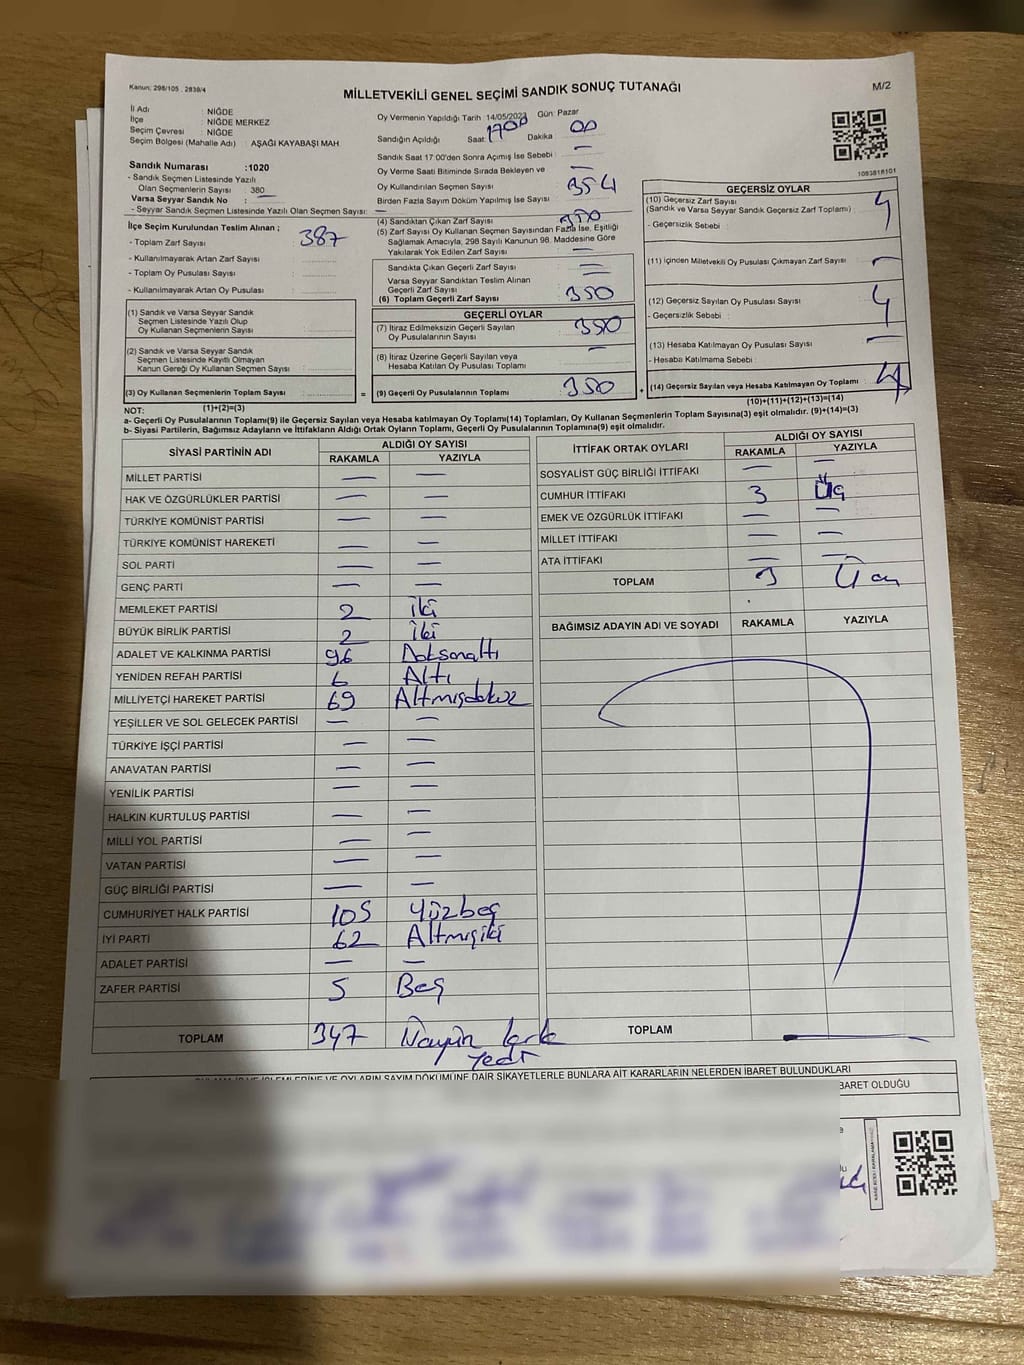 Kanun: 298/105 , 2839/4
MİLLETVEKİLİ GENEL SEÇİMİ SANDIK SONUÇ TUTANAĞI
M/2
İl Adı : NİĞDE
İlçe : NİĞDE MERKEZ
Seçim Çevresi : NİĞDE
Seçim Bölgesi (Mahalle Adı) : AŞAĞI KAYABAŞI MAH
Sandık Numarası :1020
- Sandık Seçmen Listesinde Yazılı
Olan Seçmenlerin Sayısı : 380
Varsa Seyyar Sandık No : —
- Seyyar Sandık Seçmen Listesinde Yazılı Olan Seçmen Sayısı: —
İlçe Seçim Kurulundan Teslim Alınan ;
- Toplam Zarf Sayısı : 387
- Kullanılmayarak Artan Zarf Sayısı :
- Toplam Oy Pusulası Sayısı :
- Kullanılmayarak Artan Oy Pusulası :
(1) Sandık ve Varsa Seyyar Sandık
Seçmen Listesinde Yazılı Olup
Oy Kullanan Seçmenlerin Sayısı :
(2) Sandık ve Varsa Seyyar Sandık
Seçmen Listesinde Kayıtlı Olmayan
Kanun Gereği Oy Kullanan Seçmen Sayısı :
(3) Oy Kullanan Seçmenlerin Toplam Sayısı : =
(1)+(2)=(3)
Oy Vermenin Yapıldığı Tarih 14/05/2023 Gün: Pazar
Sandığın Açıldığı Saat: 1700 Dakika : 00
Sandık Saat 17:00'den Sonra Açımış İse Sebebi : —
Oy Verme Saati Bitiminde Sırada Bekleyen ve —
Oy Kullandırılan Seçmen Sayısı : 354
Birden Fazla Sayım Döküm Yapılmış İse Sayısı : —
(4) Sandıktan Çıkan Zarf Sayısı : 350
(5) Zarf Sayısı Oy Kullanan Seçmen Sayısından Fazla İse, Eşitliği
Sağlamak Amacıyla, 298 Sayılı Kanunun 98. Maddesine Göre
Yakılarak Yok Edilen Zarf Sayısı : —
Sandıkta Çıkan Geçerli Zarf Sayısı : —
Varsa Seyyar Sandıktan Teslim Alınan
Geçerli Zarf Sayısı : —
(6) Toplam Geçerli Zarf Sayısı : 350
GEÇERLİ OYLAR
(7) İtiraz Edilmeksizin Geçerli Sayılan
Oy Pusulalarının Sayısı : 350
(8) İtiraz Üzerine Geçerli Sayılan veya
Hesaba Katılan Oy Pusulası Toplamı : —
(9) Geçerli Oy Pusulalarının Toplamı : 350 +
1093818101
GEÇERSİZ OYLAR
(10) Geçersiz Zarf Sayısı : 4
(Sandık ve Varsa Seyyar Sandık Geçersiz Zarf Toplamı)
- Geçersizlik Sebebi :
(11) İçinden Milletvekili Oy Pusulası Çıkmayan Zarf Sayısı : —
(12) Geçersiz Sayılan Oy Pusulası Sayısı : 4
- Geçersizlik Sebebi :
(13) Hesaba Katılmayan Oy Pusulası Sayısı : —
- Hesaba Katılmama Sebebi :
(14) Geçersiz Sayılan veya Hesaba Katılmayan Oy Toplamı : 4
(10)+(11)+(12)+(13)=(14)
NOT:
a- Geçerli Oy Pusulalarının Toplamı(9) ile Geçersiz Sayılan veya Hesaba katılmayan Oy Toplamı(14) Toplamları, Oy Kullanan Seçmenlerin Toplam Sayısına(3) eşit olmalıdır. (9)+(14)=(3)
b- Siyasi Partilerin, Bağımsız Adayların ve İttifakların Aldığı Ortak Oyların Toplamı, Geçerli Oy Pusulalarının Toplamına(9) eşit olmalıdır.
SİYASİ PARTİNİN ADI ALDIĞI OY SAYISI
RAKAMLA YAZIYLA
MİLLET PARTİSİ — —
HAK VE ÖZGÜRLÜKLER PARTİSİ — —
TÜRKİYE KOMÜNİST PARTİSİ — —
TÜRKİYE KOMÜNİST HAREKETİ — —
SOL PARTİ — —
GENÇ PARTİ — —
MEMLEKET PARTİSİ 2 İki
BÜYÜK BİRLİK PARTİSİ 2 İki
ADALET VE KALKINMA PARTİSİ 96 Doksanaltı
YENİDEN REFAH PARTİSİ 6 Altı
MİLLİYETÇİ HAREKET PARTİSİ 69 Altmışdokuz
YEŞİLLER VE SOL GELECEK PARTİSİ — —
TÜRKİYE İŞÇİ PARTİSİ — —
ANAVATAN PARTİSİ — —
YENİLİK PARTİSİ — —
HALKIN KURTULUŞ PARTİSİ — —
MİLLİ YOL PARTİSİ — —
VATAN PARTİSİ — —
GÜÇ BİRLİĞİ PARTİSİ — —
CUMHURİYET HALK PARTİSİ 105 Yüzbeş
İYİ PARTİ 62 Altmışiki
ADALET PARTİSİ — —
ZAFER PARTİSİ 5 Beş
TOPLAM 347
yedi
İTTİFAK ORTAK OYLARI ALDIĞI OY SAYISI
RAKAMLA YAZIYLA
SOSYALİST GÜÇ BİRLİĞİ İTTİFAKI — —
CUMHUR İTTİFAKI 3 Üç
EMEK VE ÖZGÜRLÜK İTTİFAKI — —
MİLLET İTTİFAKI — —
ATA İTTİFAKI — —
TOPLAM 3
BAĞIMSIZ ADAYIN ADI VE SOYADI RAKAMLA YAZIYLA
TOPLAM —
OYLARIN SAYIM DÖKÜMÜNE DAİR ŞİKAYETLERLE BUNLARA AİT KARARLARIN NELERDEN İBARET BULUNDUKLARI
BARET OLDUĞU